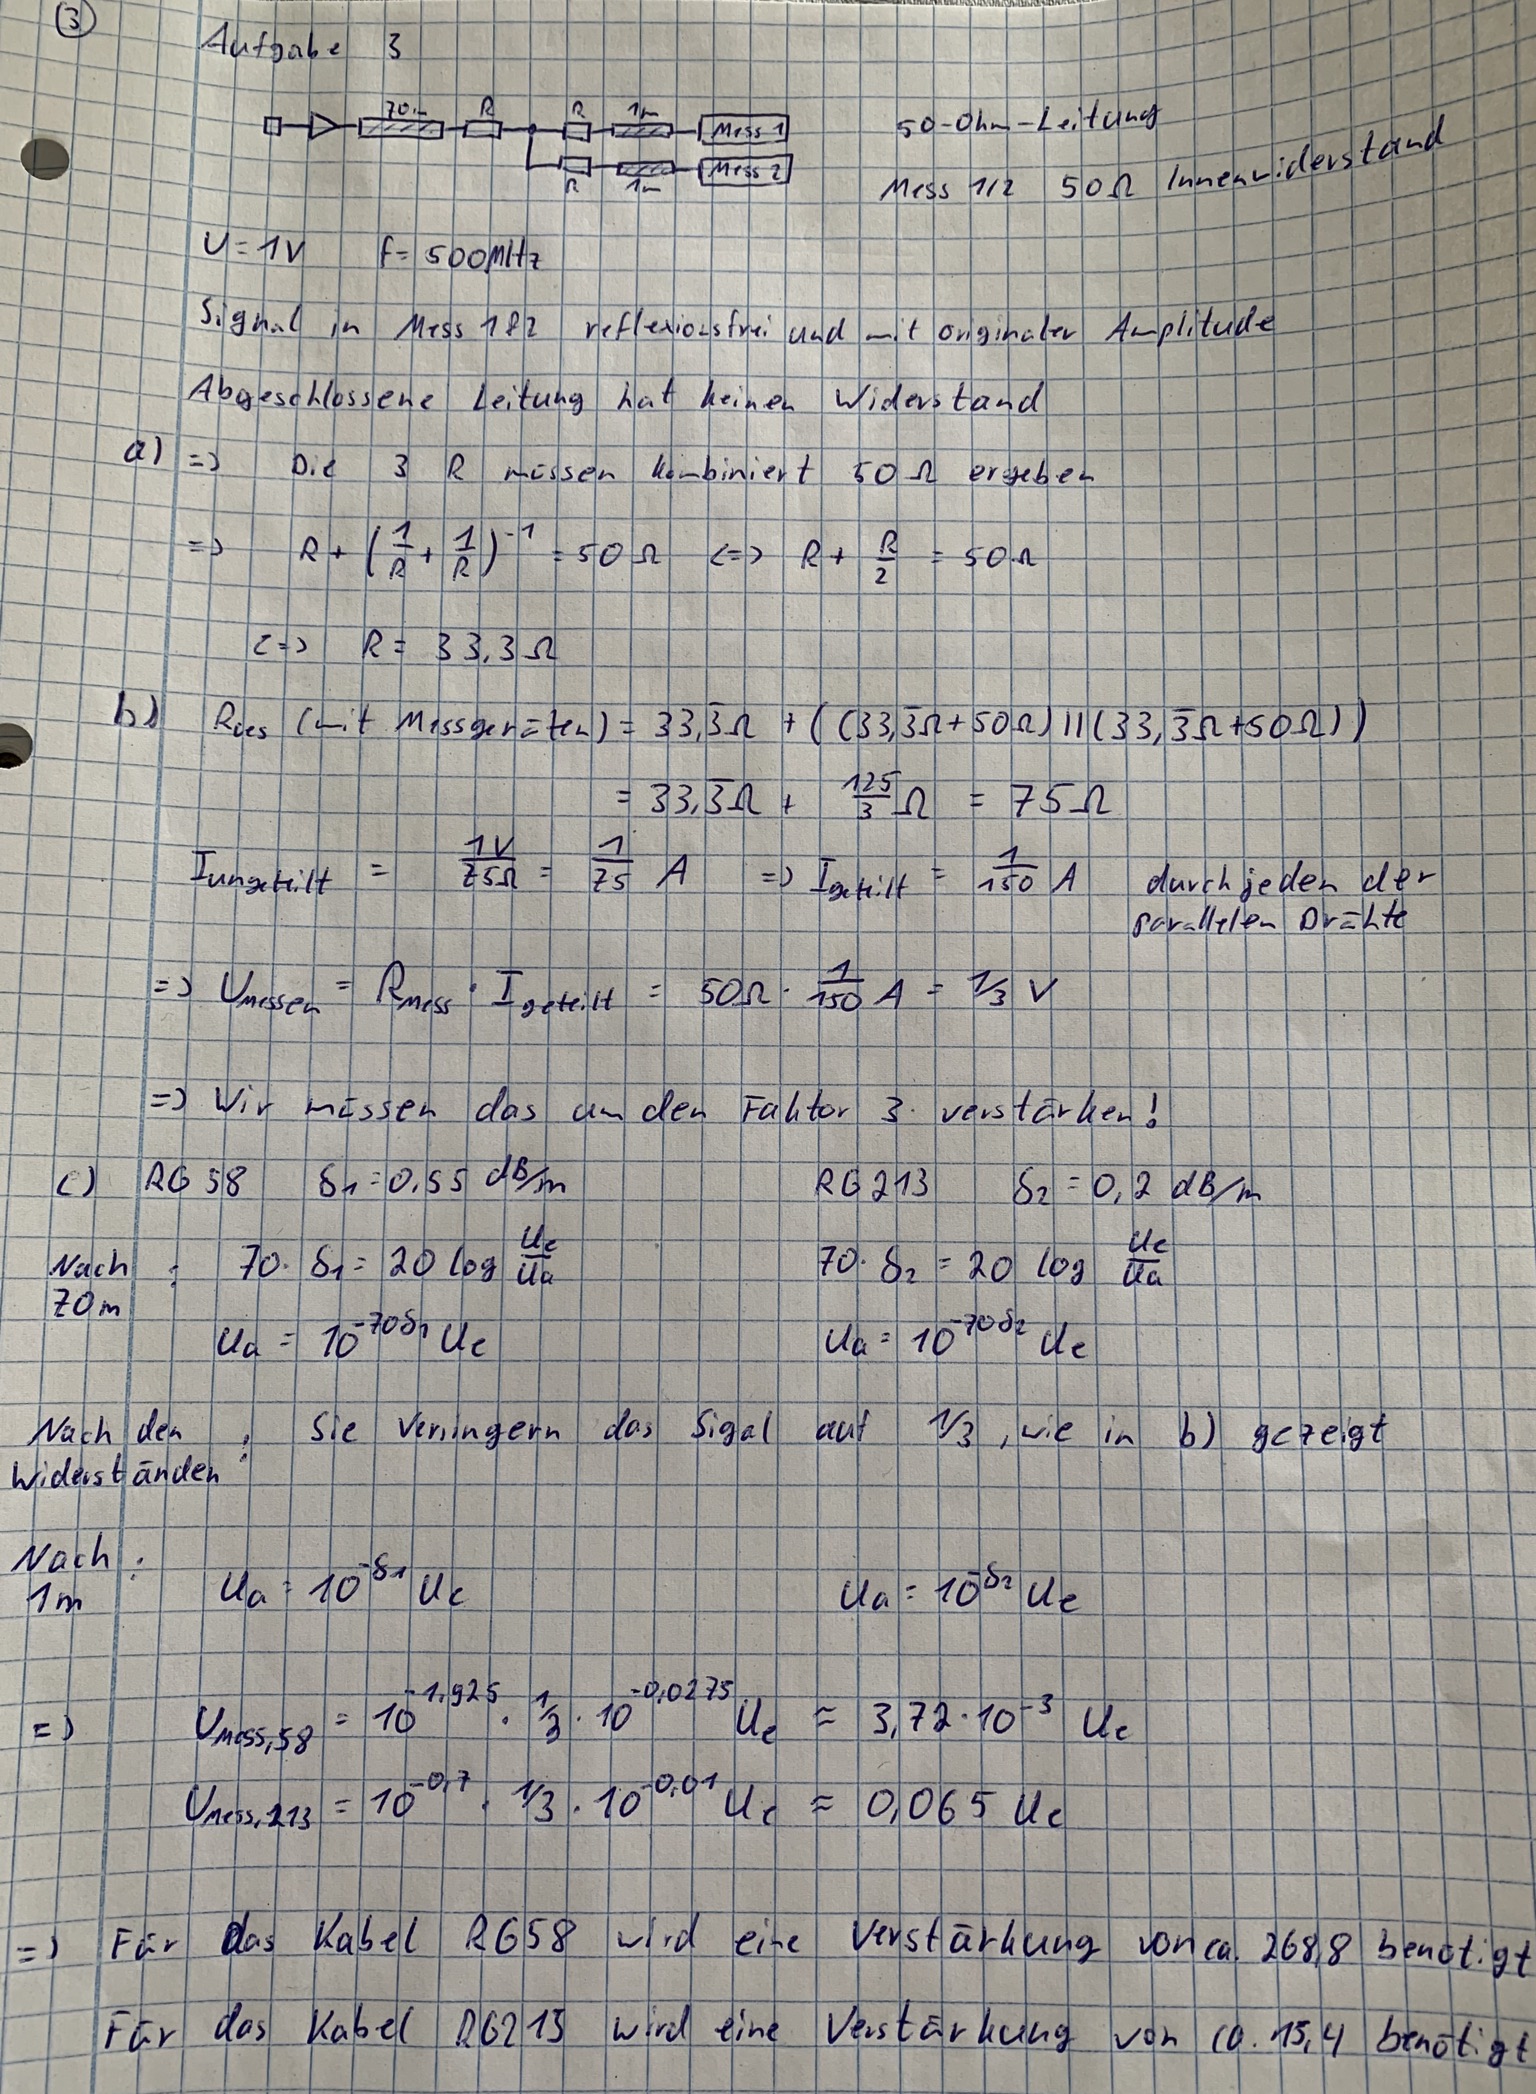 ③
Aufgabe 3
70m R R 1m Mess 1
R 1m Mess 2
50-Ohm-Leitung
Mess 1/2 50Ω Innenwiderstand
U = 1V f = 500MHz
Signal in Mess 1&2 reflexionsfrei und mit originaler Amplitude
Abgeschlossene Leitung hat keinen Widerstand
a) => Die 3 R müssen kombiniert 50 Ω ergeben
=> R + (1/R + 1/R)^-1 = 50 Ω <=> R + R/2 = 50Ω
<=> R = 33,3 Ω
b) Rges (mit Messgeräten) = 33,3̅Ω + ((33,3̅Ω+50Ω)||(33,3̅Ω+50Ω))
= 33,3̅Ω + 125/3 Ω = 75Ω
Iungeteilt = 1V/75Ω = 1/75 A => Igeteilt = 1/150 A durch jeden der
parallelen Drähte
=> Umessen = RMess · Igeteilt = 50Ω · 1/150 A = 1/3 V
=> Wir müssen das um den Faktor 3 verstärken!
c) RG 58 δ1 = 0,55 dB/m RG 213 δ2 = 0,2 dB/m
Nach 70m : 70 · δ1 = 20 log Ue/Ua 70 · δ2 = 20 log Ue/Ua
Ua = 10^-70δ1 Ue Ua = 10^-70δ2 Ue
Nach den Widerständen : Sie verringern das Sigal auf 1/3, wie in b) gezeigt
Nach 1m : Ua = 10^-δ1 Ue Ua = 10^-δ2 Ue
=> UMess,58 = 10^-1,925 · 1/3 · 10^-0,0275 Ue ≈ 3,72 · 10^-3 Ue
UMess,213 = 10^-0,7 · 1/3 · 10^-0,01 Ue ≈ 0,065 Ue
=> Für das Kabel RG58 wird eine Verstärkung von ca. 268,8 benötigt
Für das Kabel RG213 wird eine Verstärkung von ca. 15,4 benötigt